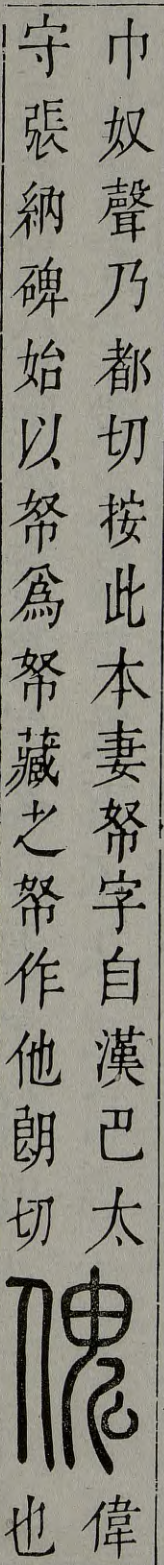 巾奴聲乃都切按此本妻帑字自漢巴太
守張納碑始以帑爲帑藏之帑作他朗切
傀
偉
也